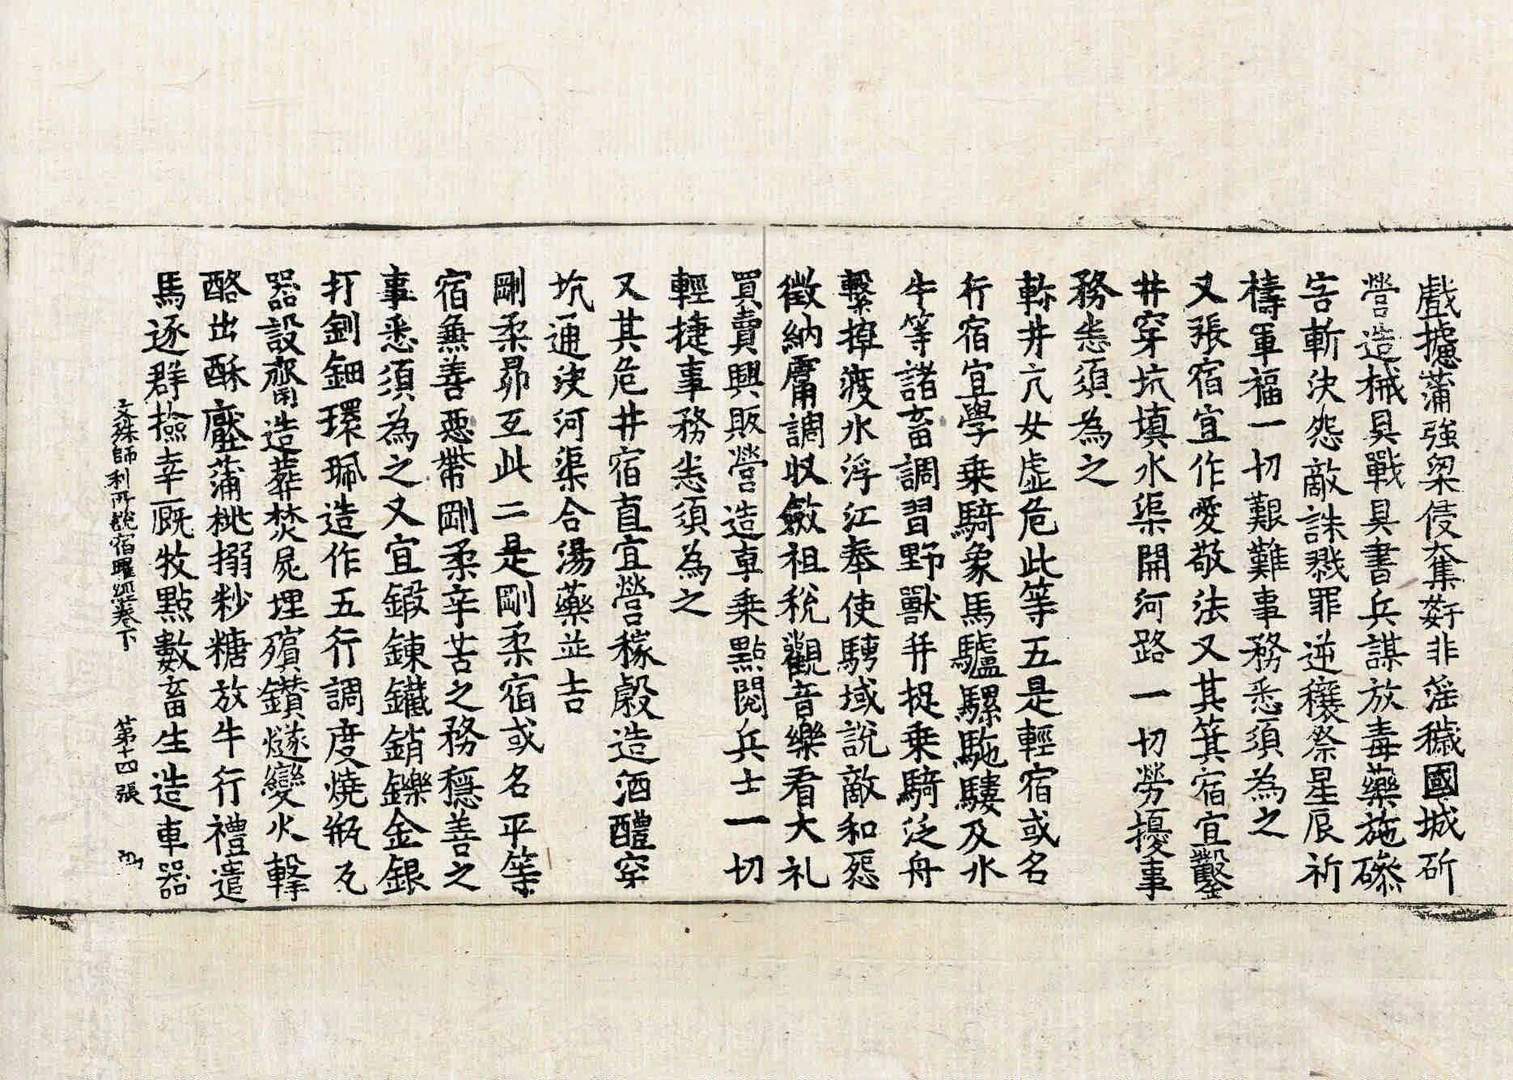 戲摴蒲強梁侵奪姧非淫穢國城斫
營造械具戰具書兵謀放毒藥施磔
害斬決怨敵誅戮罪逆禳祭星辰祈
禱軍福一切艱難事務悉須為之
又張宿宜作愛敬法又其箕宿宜鑿
井穿坑填水渠開河路一切勞擾事
務悉須為之
軫井亢女虛危此等五是輕宿或名
行宿宜學乘騎象馬驢騾駞驢及水
牛等諸畜調習野獸并捉乘騎泛舟
繫棹渡水浮江奉使騁域說敵和怨
徵納庸調收斂租稅觀音樂看大礼
買賣興販營造車乘點閱兵士一切
輕捷事務悉須為之
又其危井宿直宜營稼穀造酒醴穿
坑通決河渠合湯藥並吉
剛柔昴互此二是剛柔宿或名平等
宿無善惡帶剛柔辛苦之務穩善之
事悉須為之又宜鍛鍊鑞銷鑠金銀
打釧鈿環珮造作五行調度燒瓶瓦
器設齋造葬焚屍埋殯鑽燧變火擊
酪出酥壓蒲桃搦粆糖放牛行禮遣
馬逐群撿幸厩牧點數畜生造車器
文殊師利所說宿曜經卷下 第十四張